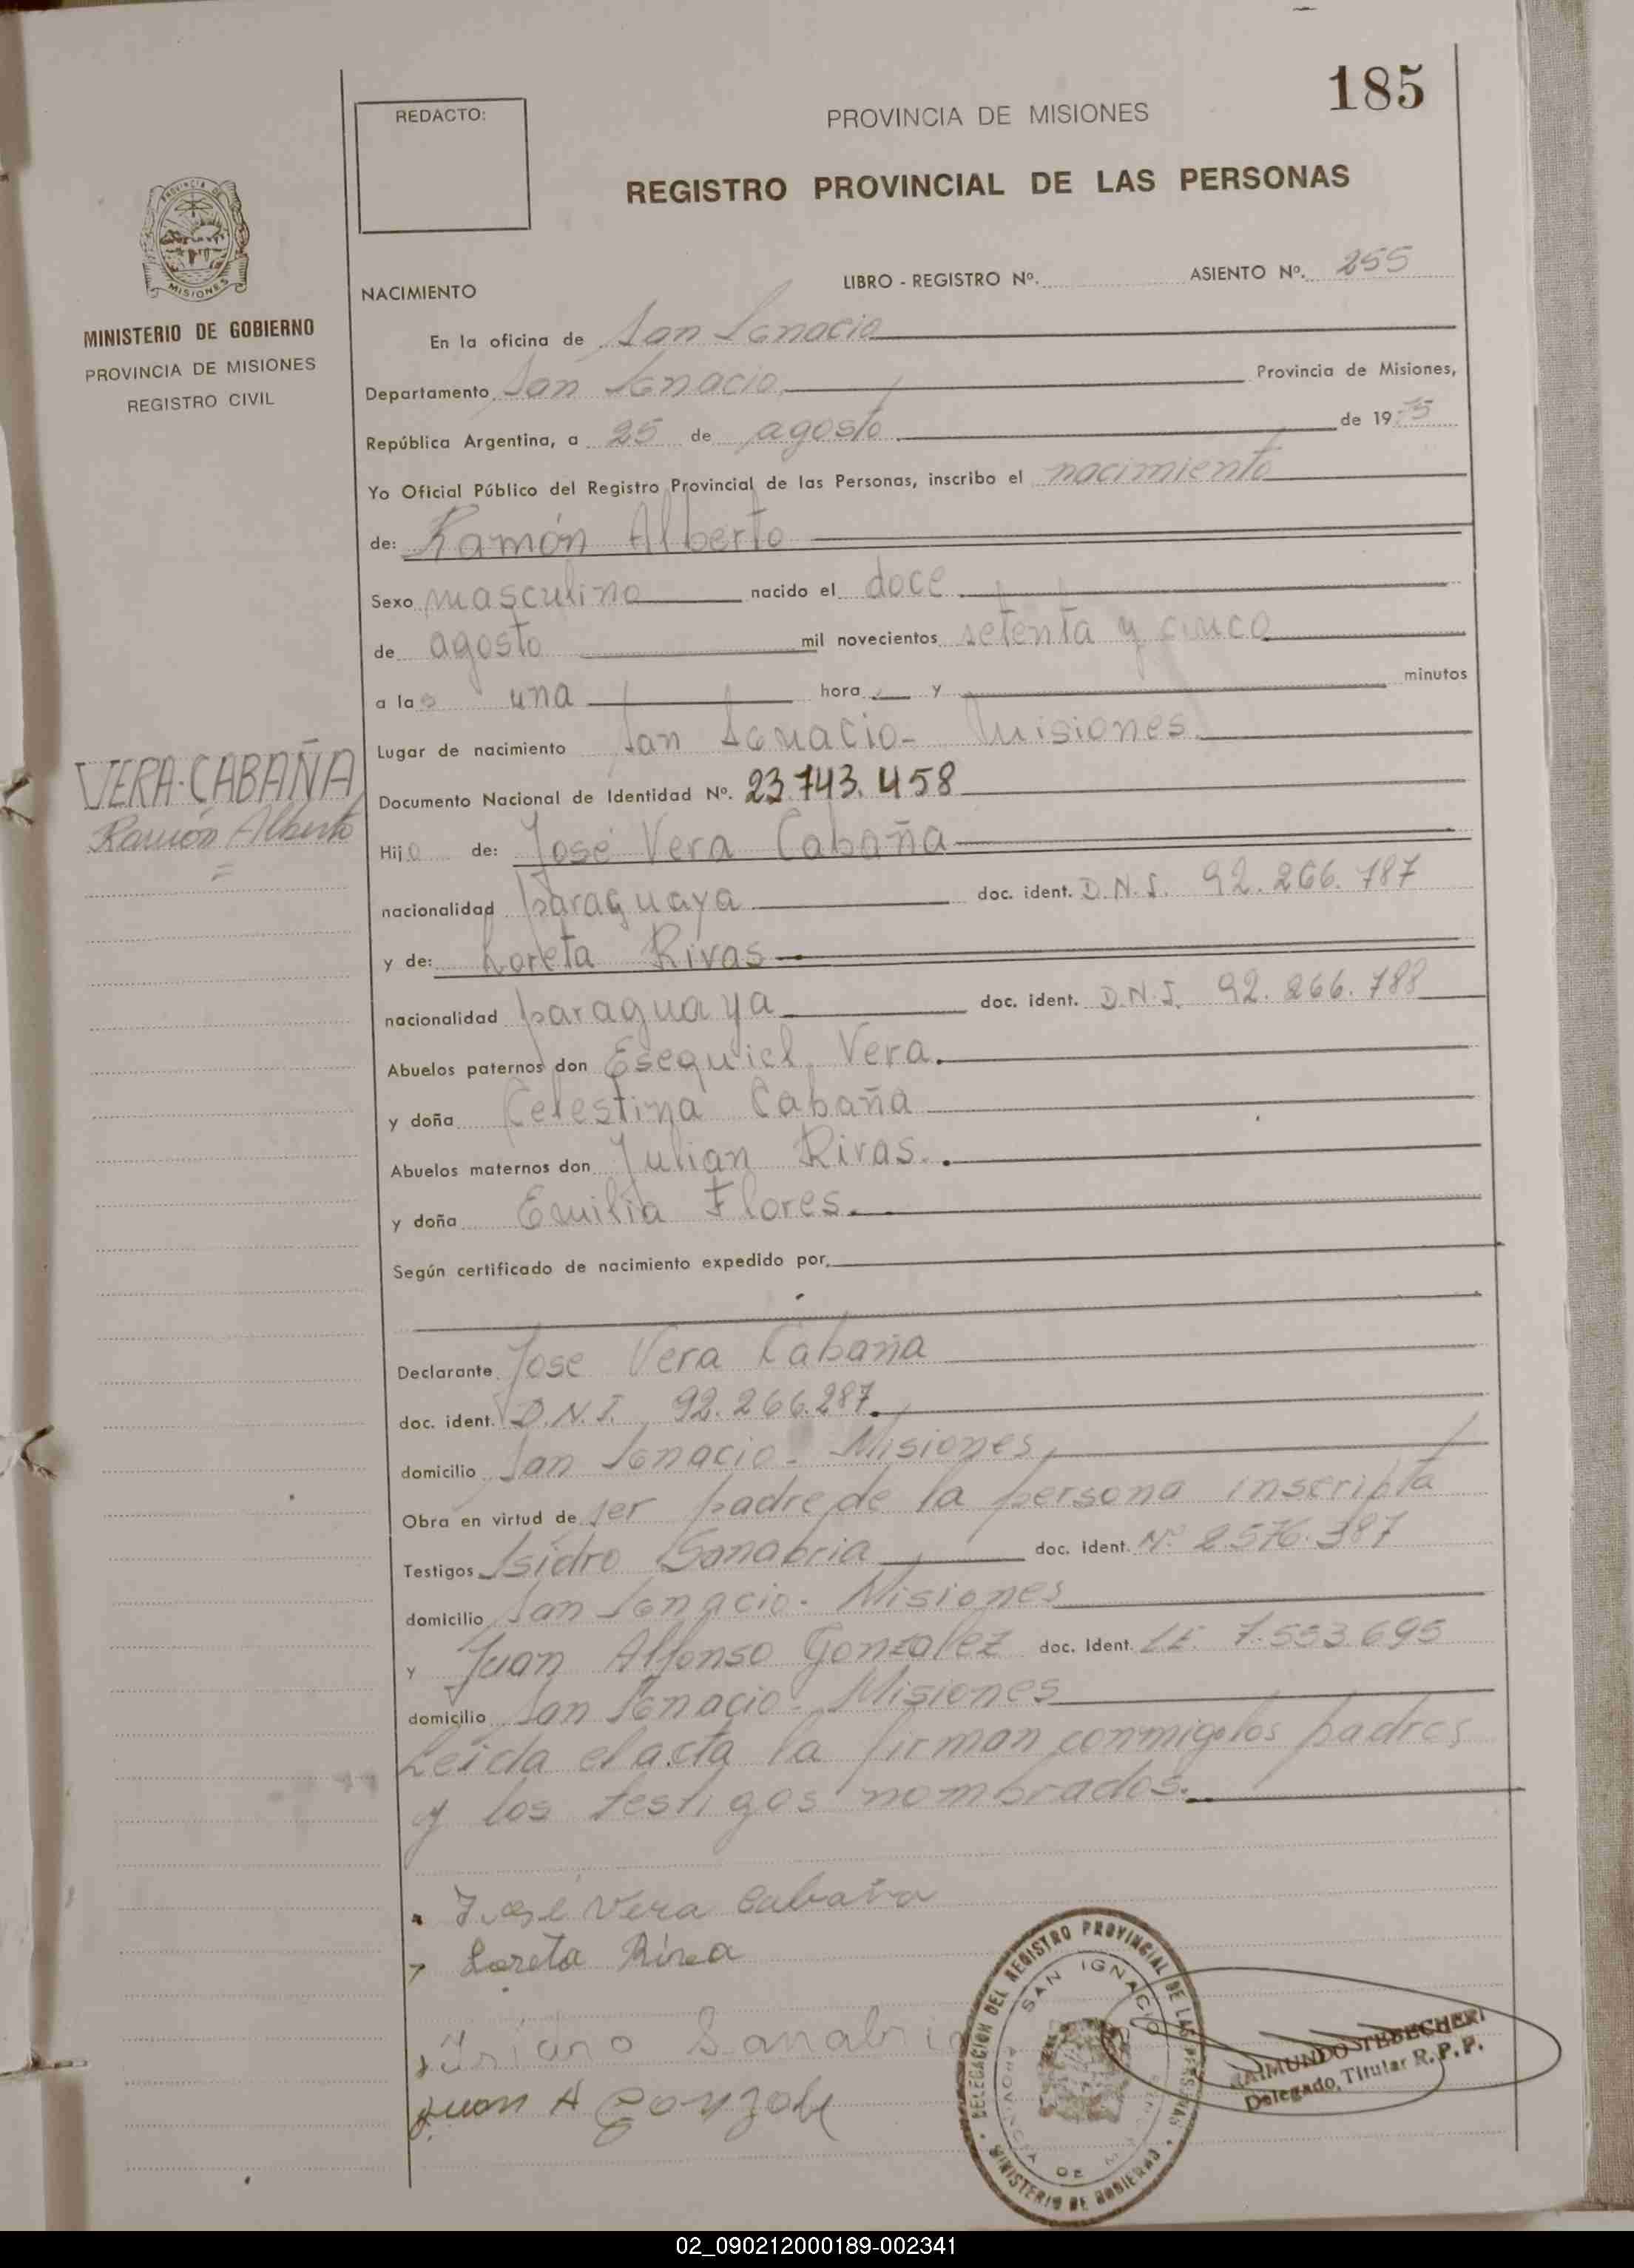 185
REDACTO:
PROVINCIA DE MISIONES
REGISTRO PROVINCIAL DE LAS PERSONAS
PROVINCIA DE
MISIONES
MINISTERIO DE GOBIERNO
PROVINCIA DE MISIONES
REGISTRO CIVIL
NACIMIENTO LIBRO - REGISTRO Nº. ASIENTO Nº. 255
En la oficina de San Ignacio
Departamento San Ignacio Provincia de Misiones,
República Argentina, a 25 de agosto de 1975
Yo Oficial Público del Registro Provincial de las Personas, inscribo el nacimiento
de: Ramón Alberto
Sexo masculino nacido el doce
de agosto mil novecientos setenta y cinco
a las una hora y minutos
Lugar de nacimiento San Ignacio - Misiones
VERA-CABAÑA
Ramón Alberto
Documento Nacional de Identidad Nº. 23.743.458
Hijo de: José Vera Cabaña
nacionalidad paraguaya doc. ident. D.N.I. 92.266.787
y de: Loreta Rivas
nacionalidad paraguaya doc. ident. D.N.I. 92.266.788
Abuelos paternos don Esequiel Vera.
y doña Celestina Cabaña
Abuelos maternos don Julian Rivas.
y doña Emilia Flores.
Según certificado de nacimiento expedido por
Declarante Jose Vera Cabaña
doc. ident. D.N.I. 92.266.287.
domicilio San Ignacio - Misiones
Obra en virtud de ser padre de la persona inscripta
Testigos Isidro Sanabria doc. ident. Nº 2.576.387
domicilio San Ignacio - Misiones
y Juan Alfonso Gonzalez doc. Ident. L.E. 7.553.695
domicilio San Ignacio - Misiones
Leida el acta la firman conmigo los padres
y los testigos nombrados.
José Vera Cabaña
Loreta Riva
Isidro Sanabria
Juan A Gonzale
DELEGACION DEL REGISTRO PROVINCIAL DE LAS PERSONAS
SAN IGNACIO
PROVINCIA DE MISIONES
MINISTERIO DE GOBIERNO
Delegado, Titular R. P. P.
02_090212000189-002341